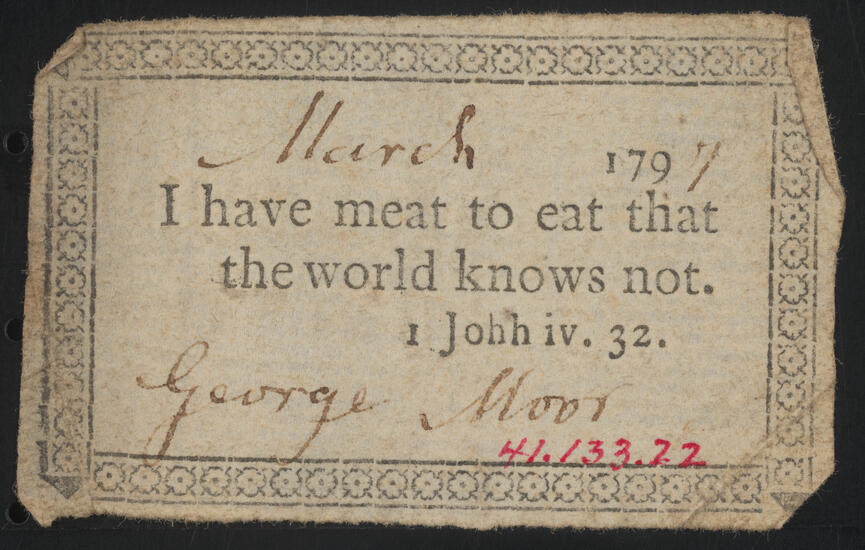 March 1797
I have meat to eat that
the world knows not.
1 Johh iv. 32.
George Moor
41.133.22